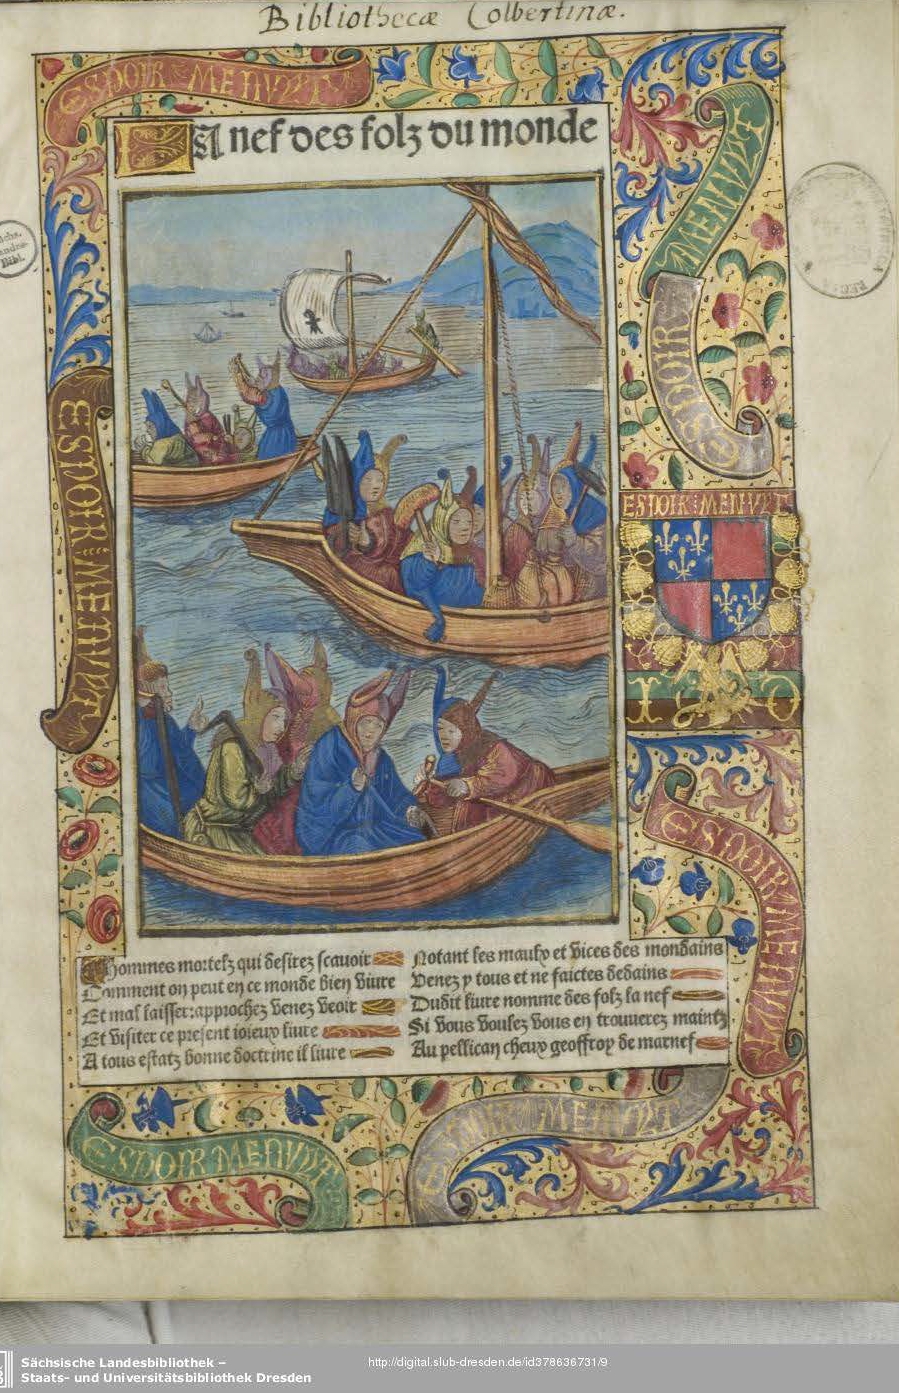 Bibliothecæ Colbertinæ.
ESPOIR MENUYT
La nef des folz du monde
ESPOIR MENUYT
ESPOIR MENUYT
ESPOIR MENUYT
I O
ESPOIR MENUYT
Hommes mortelz qui desirez scauoir
Comment on peut en ce monde bien viure
Et mal laisser: approchez venez veoir
Et visiter ce present ioieux liure
A tous estatz bonne doctrine il liure
Notant les maulx et vices des mondains
Venez y tous et ne faictes dedains
Dudit liure nomme des folz la nef
Si vous voulez vous en trouuerez maintz
Au pellican cheux geoffroy de marnef
ESPOIR MENUYT
ESPOIR MENUYT
Sächsische Landesbibliothek –
Staats- und Universitätsbibliothek Dresden
http://digital.slub-dresden.de/id378636731/9